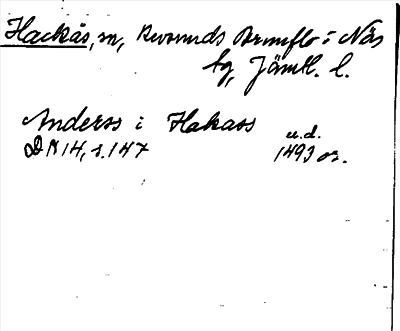 Hackås, m, Revsunds Brunflo i Näs
tg, Jämtl. l.
Anderss i Hakass
DN 14, s. 147
u.d.
1493 or.